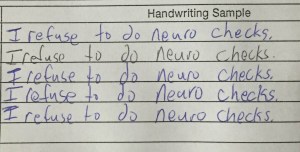 Handwriting Sample
I refuse to do neuro checks.
I refuse to do neuro checks.
I refuse to do neuro checks.
I refuse to do neuro checks.
I refuse to do neuro checks.